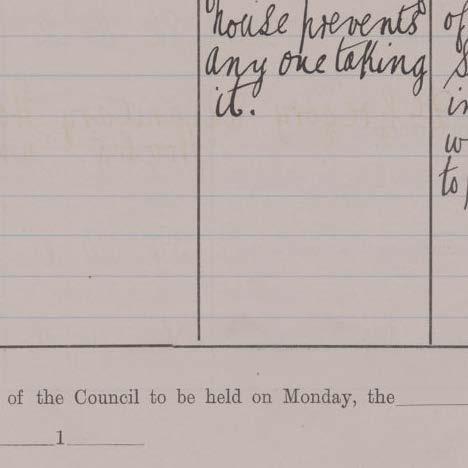 house prevents
any one taking
it.
of
in
w
to
of the Council to be held on Monday, the
1